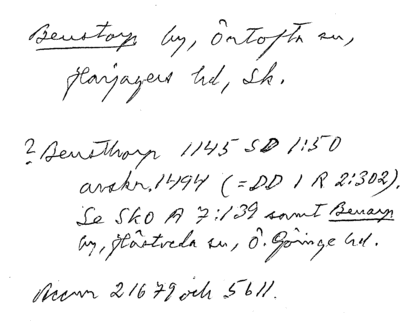 Beustorp by, Örtofta sn,
Harjagers hd, Sk.
? Beusthorp 1145 SD 1:50
avskr. 1494 (= DD 1 R 2:302).
Se SkO A 7:139 samt Benarp
by, Hästveda sn, Ö. Göinge hd.
Accnr 21679 och 5611.